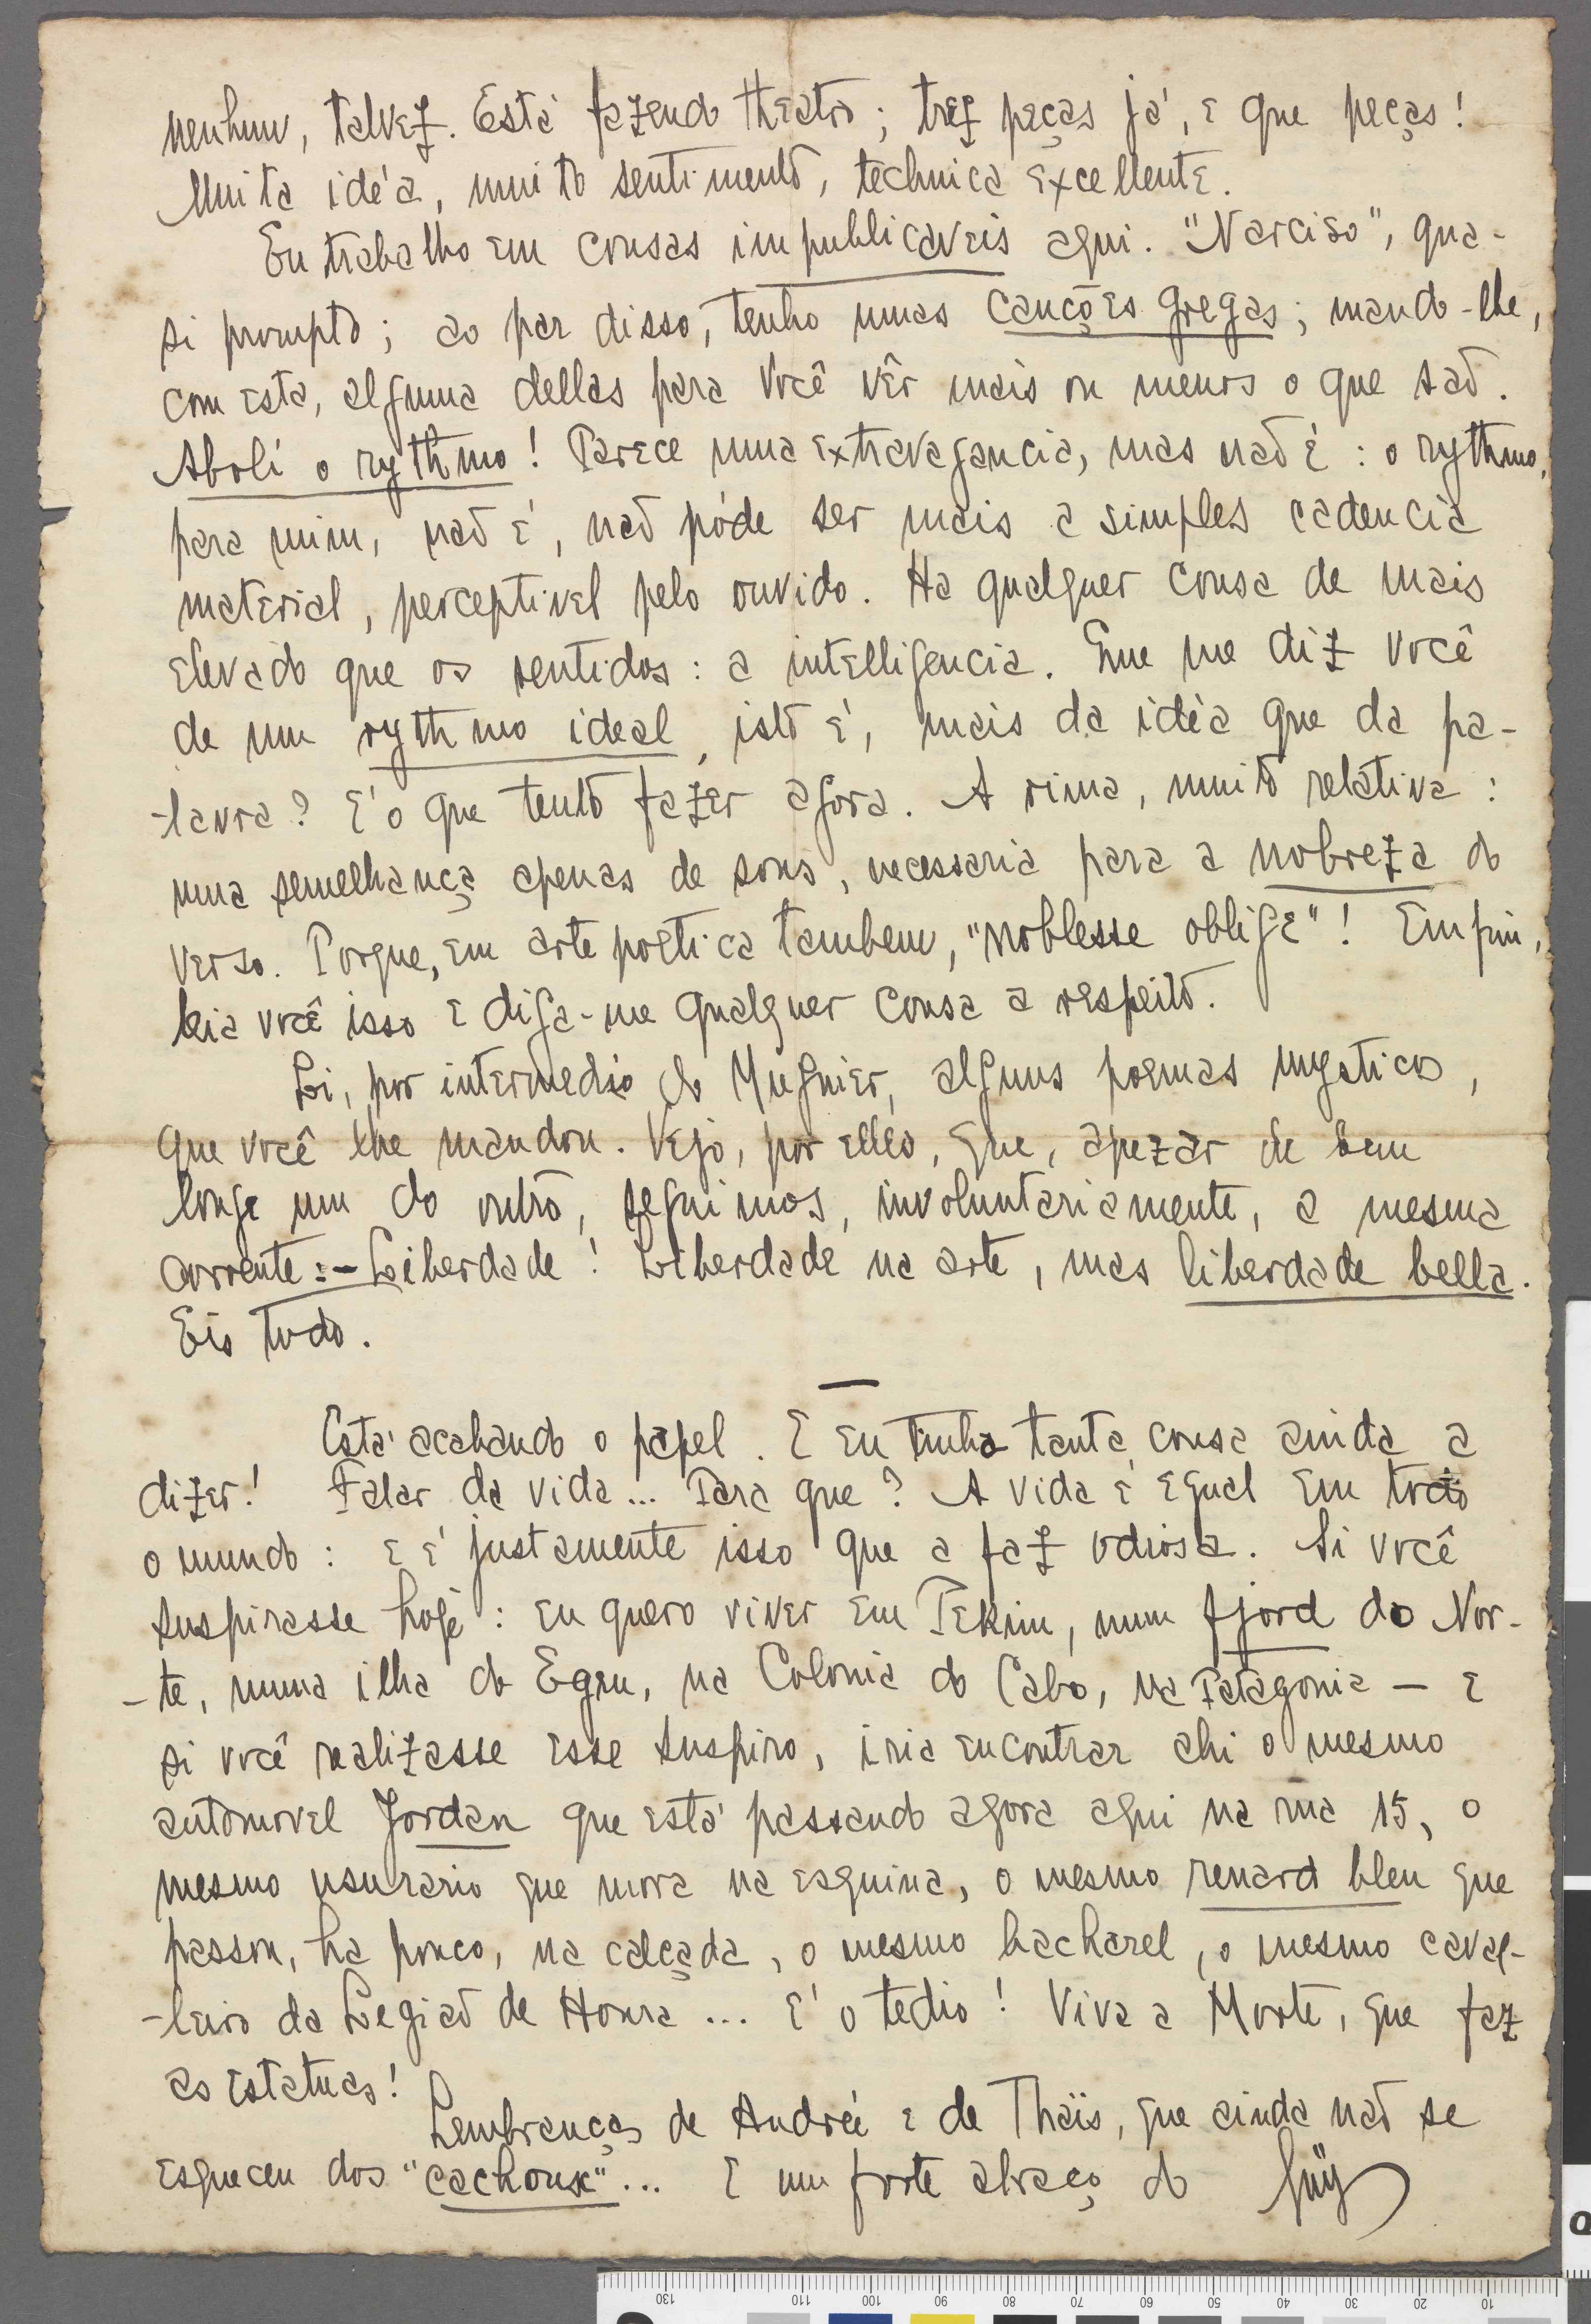 nenhum, talvez. Está fazendo theatro; trez peças já, e que peças!
Muita idéa, muito sentimento, technica excellente.
Eu trabalho em cousas impublicaveis aqui. "Narciso", qua-
si prompto; ao par disso, tenho umas canções gregas; mando-lhe,
com esta, alguma dellas para você vêr mais ou menos o que saõ.
Abolí o rythmo! Parece uma extravagancia, mas naõ é: o rythmo,
para mim, naõ é, naõ póde ser mais a simples cadencia
material, perceptivel pelo ouvido. Ha qualquer cousa de mais
elevado que os sentidos: a intelligencia. Que me diz você
de um rythmo ideal, isto é, mais da idéa que da pa-
-lavra? É o que tento fazer agora. A rima, muito relativa:
uma semelhança apenas de sons, necessaria para a nobreza do
verso. Porque, em arte poetica tambem, "noblesse oblige"! Emfim,
leia você isso e diga-me qualquer cousa a respeito.
Li, por intermedio do Mugnier, alguns poemas mysticos,
que você lhe mandou. Vejo, por elles, que, apezar de bem
longe um do outro, seguimos, involuntariamente, a mesma
corrente:- Liberdade! Liberdade na arte, mas liberdade bella.
Eis tudo.
—
Está acabando o papel. E eu tinha tanta cousa ainda a
dizer! Falar da vida... Para que? A vida é egual em todo
o mundo: e é justamente isso que a faz odiosa. Si você
suspirasse hoje: eu quero viver em Pekim, num fjord do Nor-
-te, numa ilha do Egeu, na Colonia do Cabo, na Patagonia — e
si você realizasse esse suspiro, iria encontrar ahi o mesmo
automovel Jordan que está passando agora aqui na rua 15, o
mesmo usurario que mora na esquina, o mesmo renard bleu que
passou, ha pouco, na calçada, o mesmo bacharel, o mesmo caval-
-leiro da Legiaõ de Honra... É o tedio! Viva a Morte, que faz
as estatuas!
Lembranças de Andréé e de Thaïs, que ainda naõ se
esqueceu dos "cachoux"... E um forte abraço do Guÿ